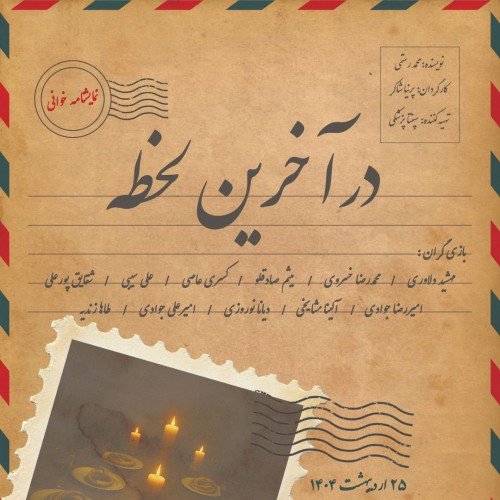 نویسنده: محمد رستمی
کارگردان: پرنیا شاکر
تهیه کننده: سپنتا پزشکی
نمایشنامه خوانی
در آخرین لحظه
بازی گران:
مهشید دلاوری / محمدرضا خسروی / میثم صادقلو / کسری عاصی / علی سیبی / شقایق پورعلی
امیررضا جوادی / آلینا مشایخی / دیانا نوروزی / امیرعلی جوادی / طاها زندیه
۲۵ اردیبهشت ۱۴۰۴